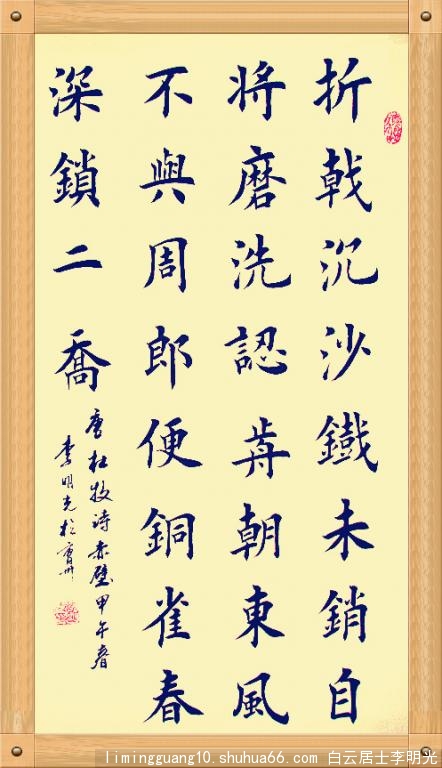 折戟沉沙鐵未銷自
将磨洗認歬朝東風
不與周郎便銅雀春
深鎖二喬
唐杜牧诗赤壁甲午春
李明光於
limingguang10.shuhua66.com 白云居士李明光